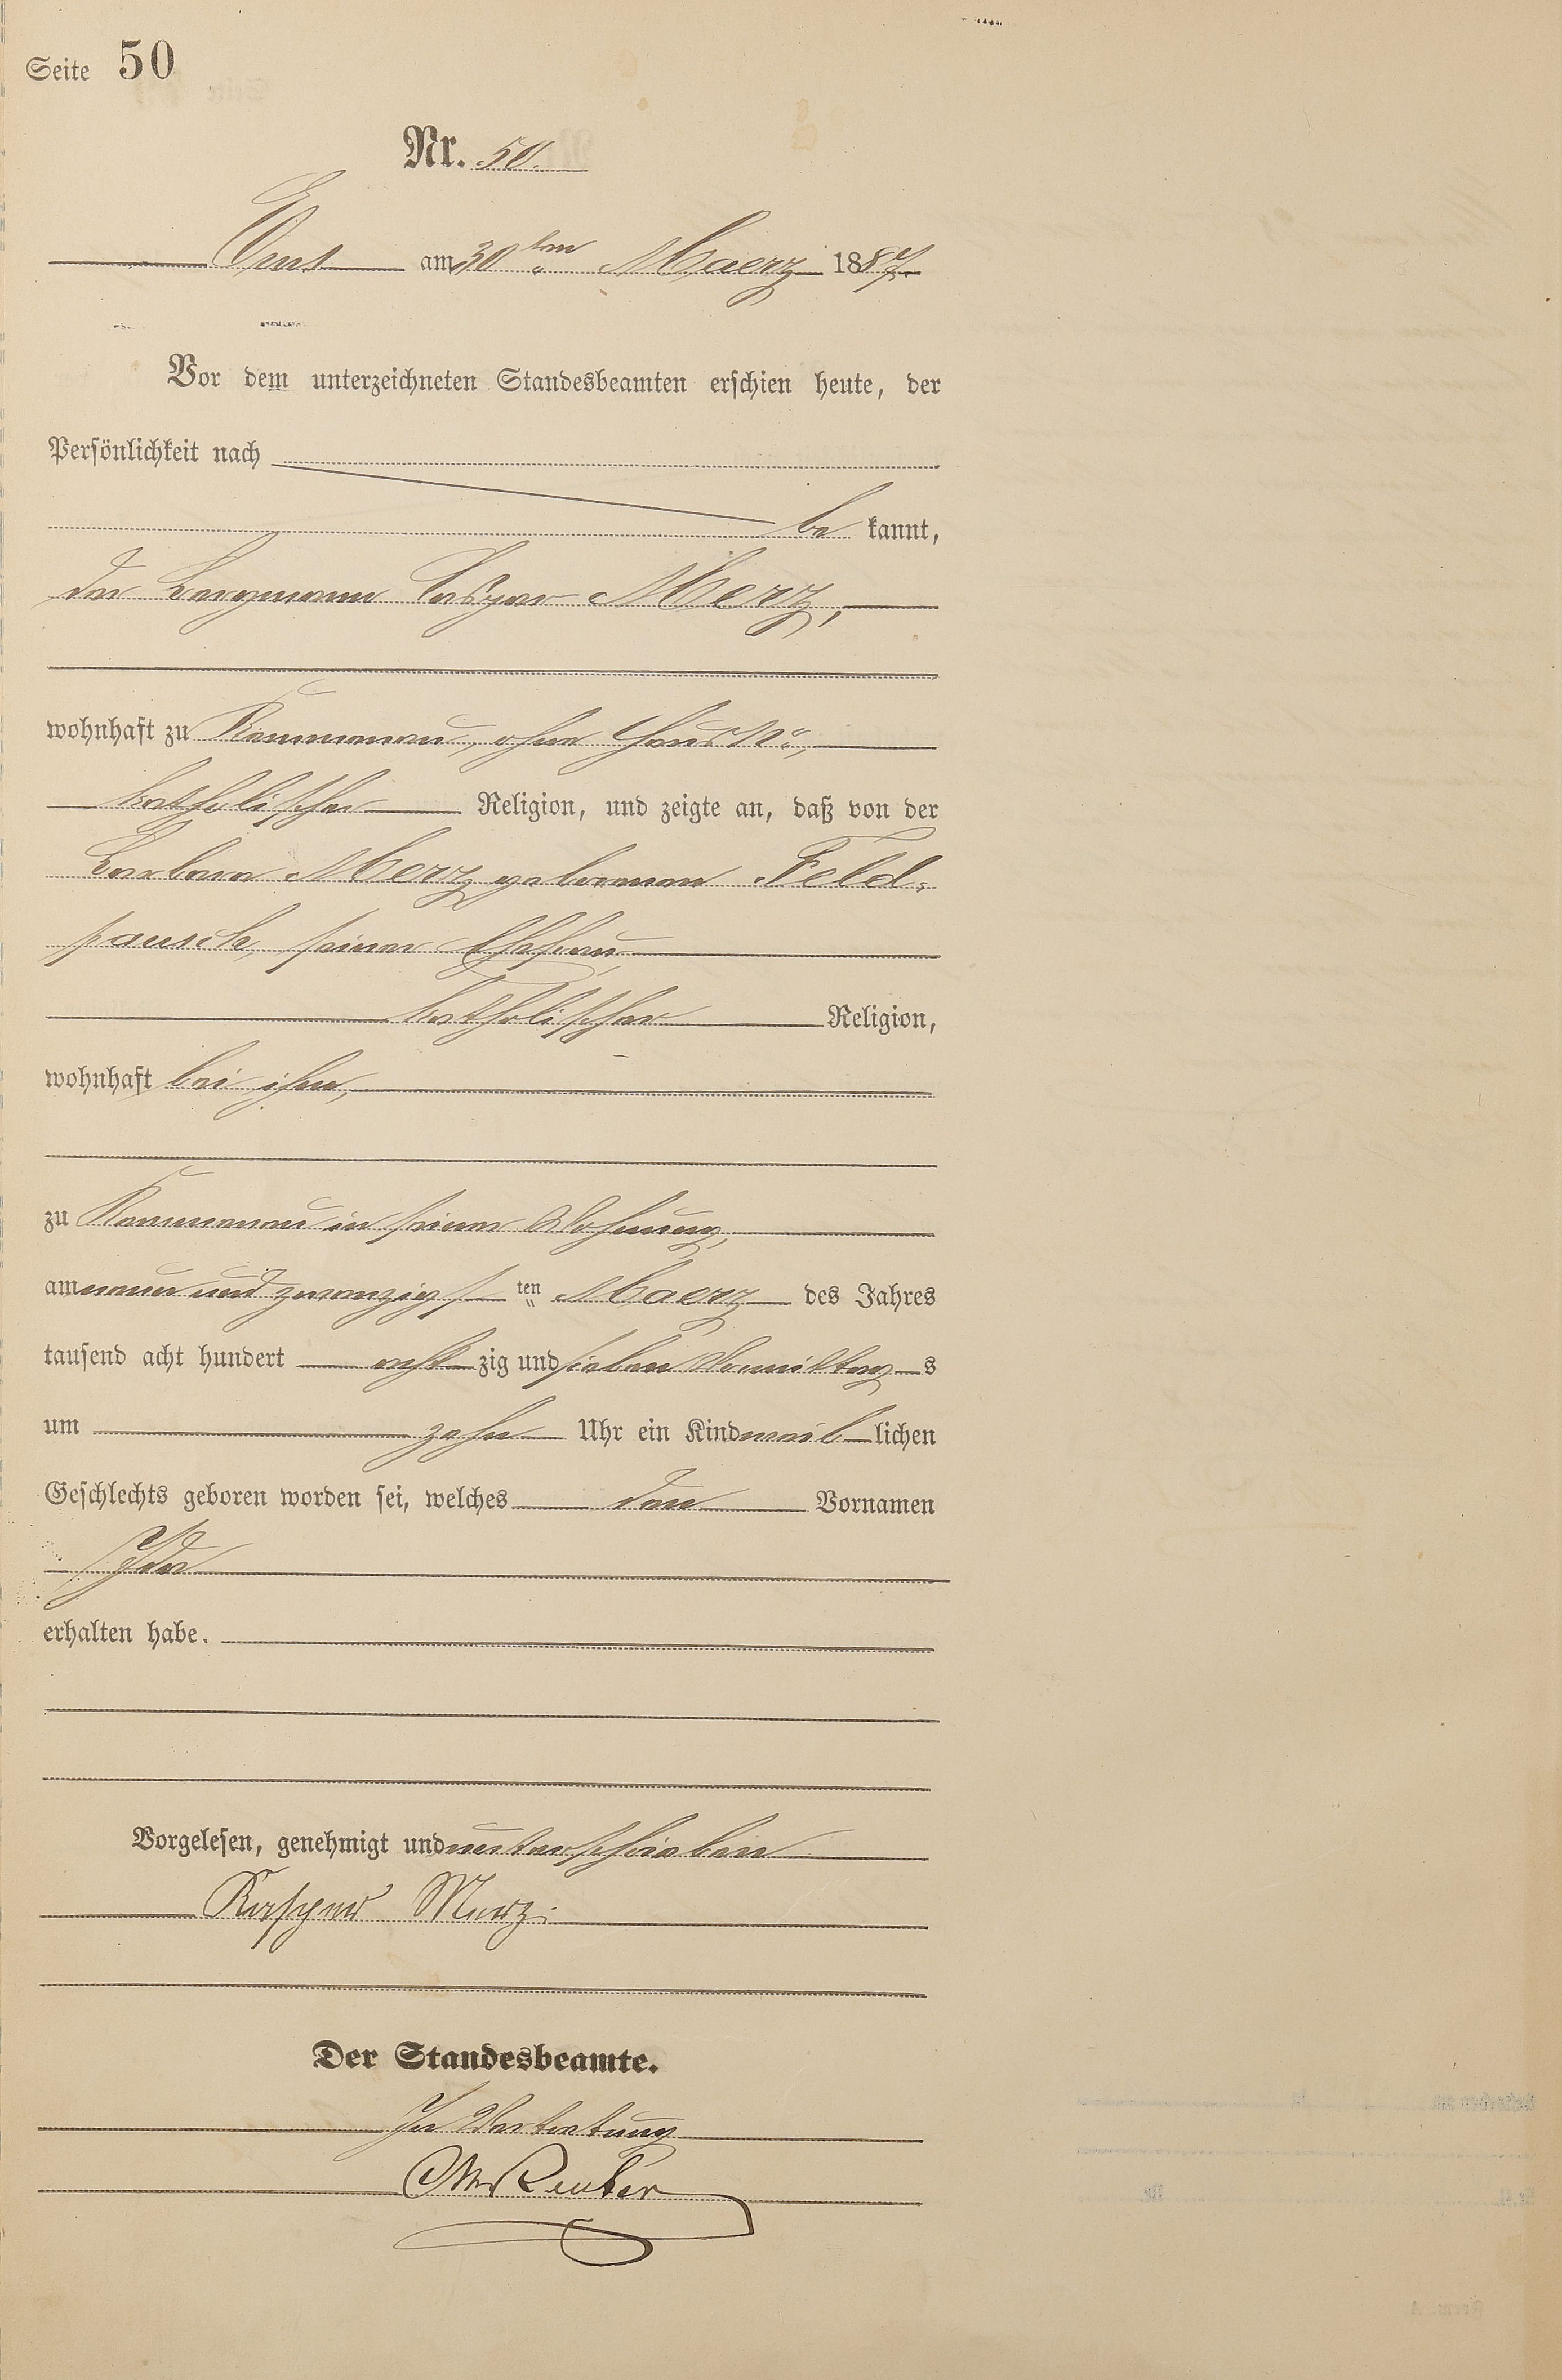 Seite 50
Nr. 50.
Ems am 30ten Maerz 1887.
Vor dem unterzeichneten Standesbeamten erschien heute, der
Persönlichkeit nach
be kannt,
der Bergmann Caspar Merz,
wohnhaft zu Kemmenau, ohne Haus No,
katholischer Religion, und zeigte an, daß von der
Barbara Merz geborenen Feld-
pausch, seiner Ehefrau
katholischer Religion,
wohnhaft bei ihm,
zu Kemmenau in seiner Wohnung,
am neun und zwanzigs ten Maerz des Jahres
tausend acht hundert acht zig und sieben Vormittag s
um zehn Uhr ein Kind weib lichen
Geschlechts geboren worden sei, welches den Vornamen
Ida
erhalten habe.
Vorgelesen, genehmigt und unterschrieben
Kaspar Merz.
Der Standesbeamte.
In Vertretung
Reuter